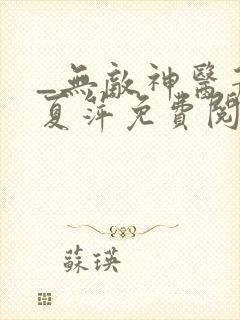 _無敵神醫
夏萍免費閱
蘇瑛